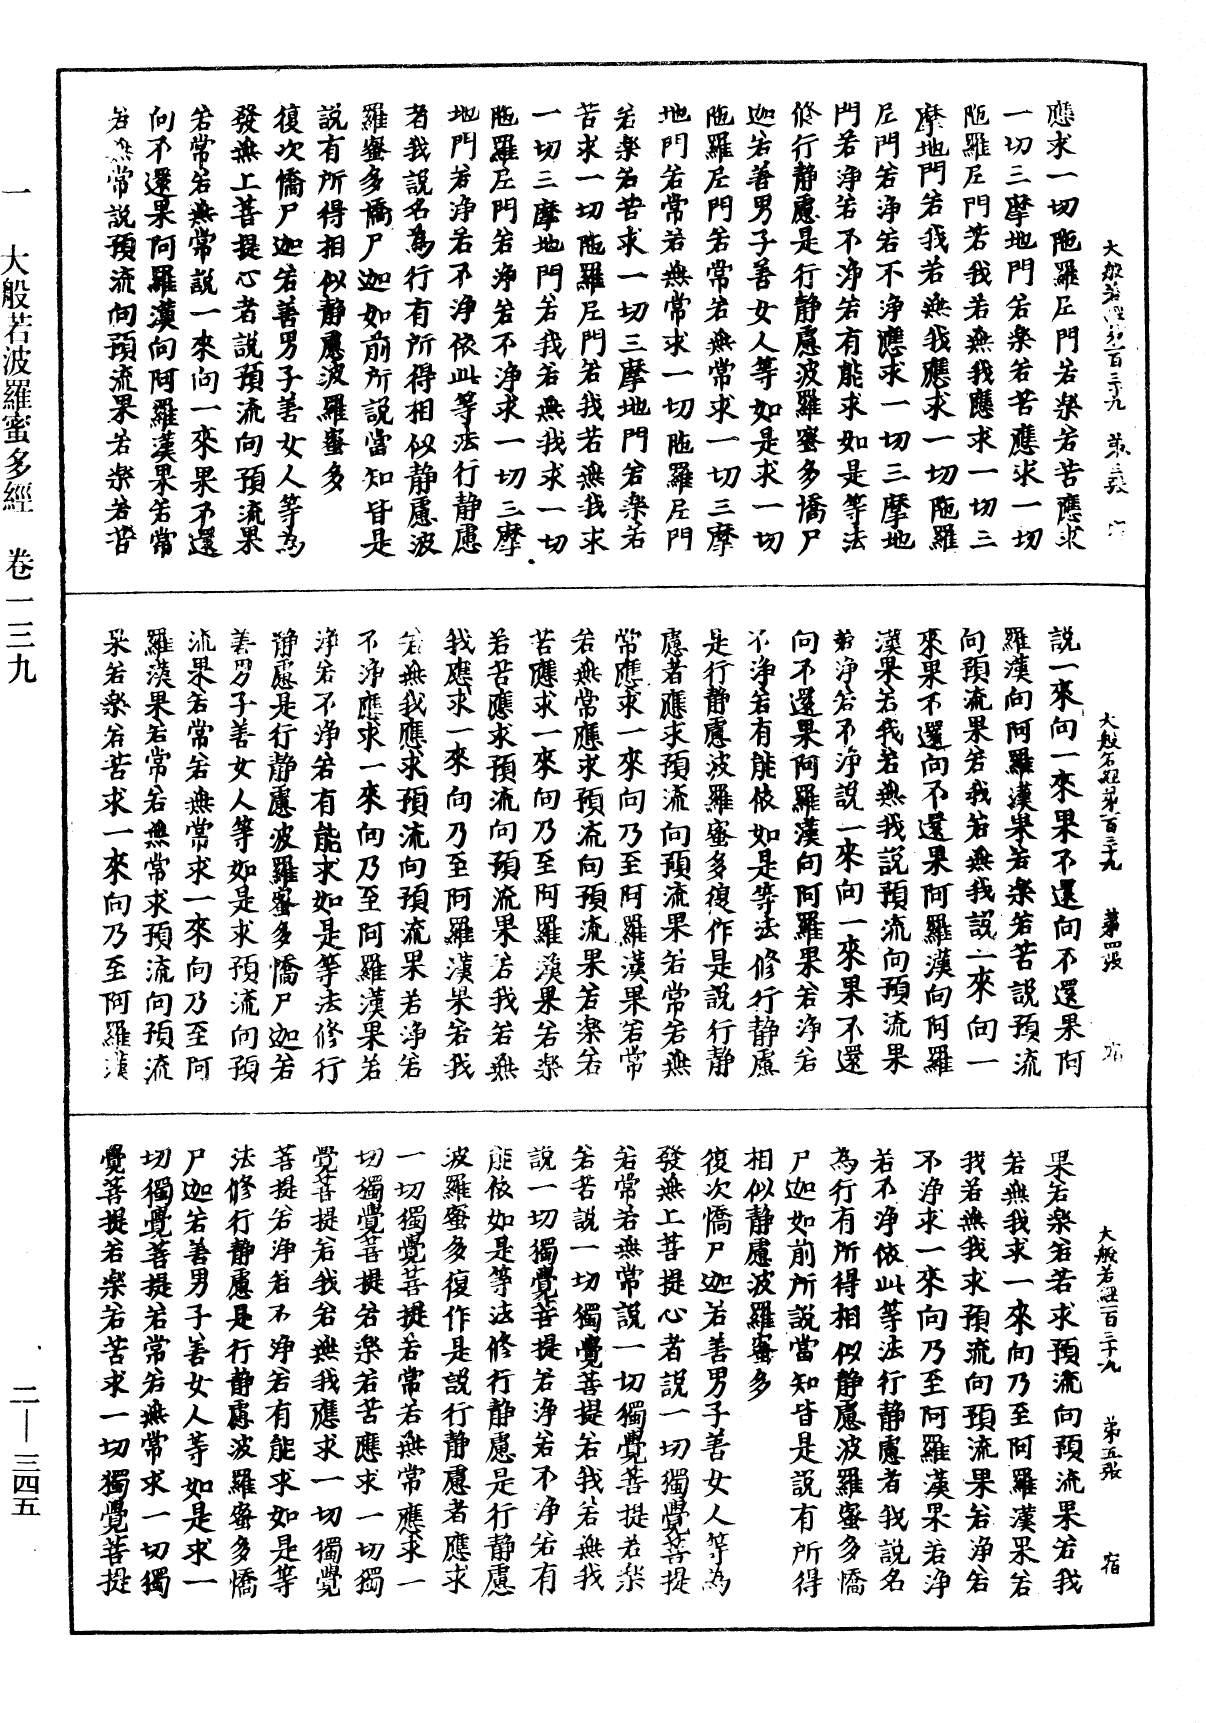 大般若經第一百三十九　第三張　宿
應求一切陁羅尼門若樂若苦應求
一切三摩地門若樂若苦應求一切
陁羅尼門若我若無我應求一切三
摩地門若我若無我應求一切陁羅
尼門若淨若不淨應求一切三摩地
門若淨若不淨若有能求如是等法
修行靜慮是行靜慮波羅蜜多憍尸
迦若善男子善女人等如是求一切
陁羅尼門若常若無常求一切三摩
地門若常若無常求一切陁羅尼門
若樂若苦求一切三摩地門若樂若
苦求一切陁羅尼門若我若無我求
一切三摩地門若我若無我求一切
陁羅尼門若淨若不淨求一切三摩
地門若淨若不淨依此等法行靜慮
者我說名為行有所得相似靜慮波
羅蜜多憍尸迦如前所說當知皆是
說有所得相似靜慮波羅蜜多
復次憍尸迦若善男子善女人等為
發無上菩提心者說預流向預流果
若常若無常說一來向一來果不還
向不還果阿羅漢向阿羅漢果若常
若無常說預流向預流果若樂若苦
大般若經第一百三十九　第四張　宿
說一來向一來果不還向不還果阿
羅漢向阿羅漢果若樂若苦說預流
向預流果若我若無我說一來向一
來果不還向不還果阿羅漢向阿羅
漢果若我若無我說預流向預流果
若淨若不淨說一來向一來果不還
向不還果阿羅漢向阿羅果若淨若
不淨若有能依如是等法修行靜慮
是行靜慮波羅蜜多復作是說行靜
慮者應求預流向預流果若常若無
常應求一來向乃至阿羅漢果若常
若無常應求預流向預流果若樂若
苦應求一來向乃至阿羅漢果若樂
若苦應求預流向預流果若我若無
我應求一來向乃至阿羅漢果若我
若無我應求預流向預流果若淨若
不淨應求一來向乃至阿羅漢果若
淨若不淨若有能求如是等法修行
靜慮是行靜慮波羅蜜多憍尸迦若
善男子善女人等如是求預流向預
流果若常若無常求一來向乃至阿
羅漢果若常若無常求預流向預流
果若樂若苦求一來向乃至阿羅漢
大般若經一百三十九　第五張　宿
果若樂若苦求預流向預流果若我
若無我求一來向乃至阿羅漢果若
我若無我求預流向預流果若淨若
不淨求一來向乃至阿羅漢果若淨
若不淨依此等法行靜慮者我說名
為行有所得相似靜慮波羅蜜多憍
尸迦如前所說當知皆是說有所得
相似靜慮波羅蜜多
復次憍尸迦若善男子善女人等為
發無上菩提心者說一切獨覺菩提
若常若無常說一切獨覺菩提若樂
若苦說一切獨覺菩提若我若無我
說一切獨覺菩提若淨若不淨若有
能依如是等法修行靜慮是行靜慮
波羅蜜多復作是說行靜慮者應求
一切獨覺菩提若常若無常應求一
切獨覺菩提若樂若苦應求一切獨
覺菩提若我若無我應求一切獨覺
菩提若淨若不淨若有能求如是等
法修行靜慮是行靜慮波羅蜜多憍
尸迦若善男子善女人等如是求一
切獨覺菩提若常若無常求一切獨
覺菩提若樂若苦求一切獨覺菩提
一　大般若波羅蜜多經　卷一三九
二—三四五